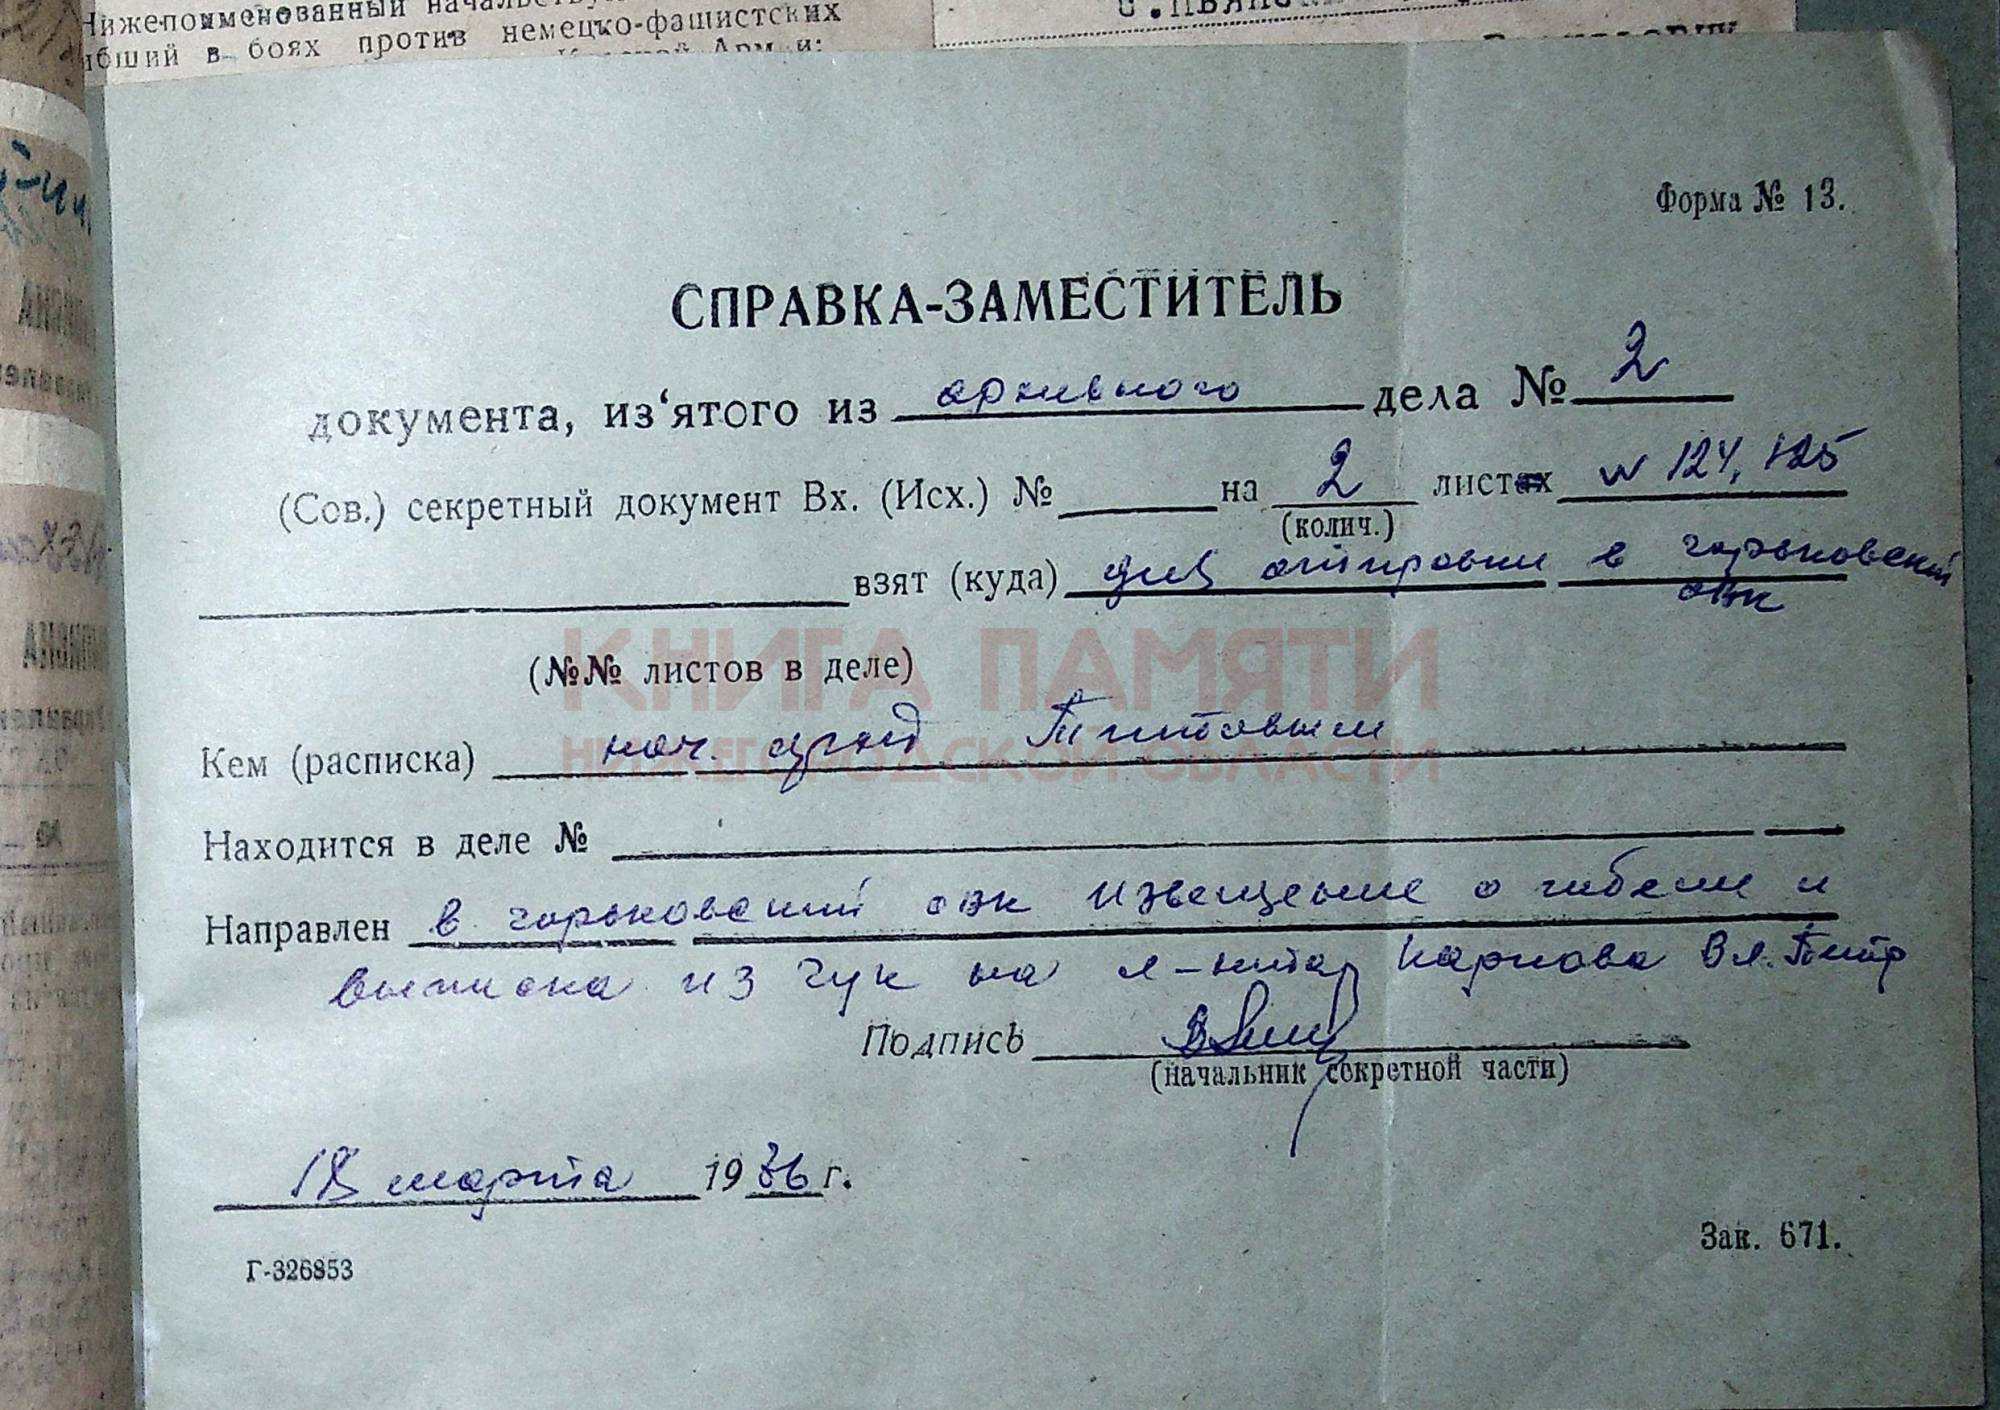 Нижепоименованный
в боях против немецко-фашистских
Форма № 13.
СПРАВКА-ЗАМЕСТИТЕЛЬ
документа, из‘ятого из архивного дела № 2
(Сов.) секретный документ Вх. (Исх.) № на 2 листах № 124, 125
(колич.)
взят (куда) для отправки в горьковский
овк
(№№ листов в деле)
КНИГА ПАМЯТИ
НИЖЕГОРОДСКОЙ ОБЛАСТИ
Кем (расписка) нач. Титовым
Находится в деле №
Направлен в горьковский овк извещение о гибели и
выписка из гук на л-нта Карпова Вл. Петр
Подпись
(начальник секретной части)
18 марта 19 г.
Г-326853
Зак. 671.